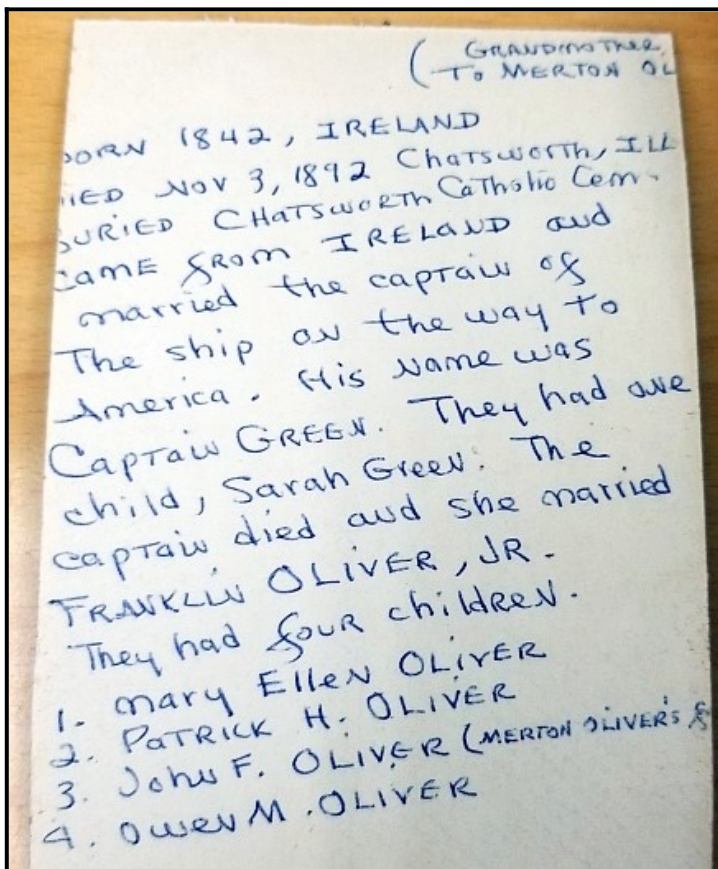 (GRANDMOTHER
TO MERTON OL
BORN 1842, IRELAND
DIED NOV 3, 1892 Chatsworth, ILL
BURIED CHATSWORTH Catholic Cem.
CAME FROM IRELAND and
married the captain of
The ship on the way to
America. His name was
Captain GREEN. They had one
child, Sarah Green. The
captain died and she married
FRANKLIN OLIVER, JR.
They had four children.
1. Mary Ellen OLIVER
2. PATRICK H. OLIVER
3. John F. OLIVER (MERTON OLIVER'S F
4. Owen M. OLIVER